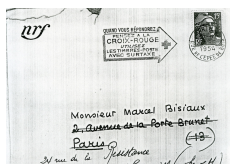 nrf
QUAND VOUS RÉPONDREZ
PENSEZ A LA
CROIX-ROUGE
UTILISEZ
LES TIMBRES-POSTE
AVEC SURTAXE
1954
Monsieur Marcel Bisiaux
2, Avenue de la Porte Brunet
Paris (19)
34 rue de la Résistance